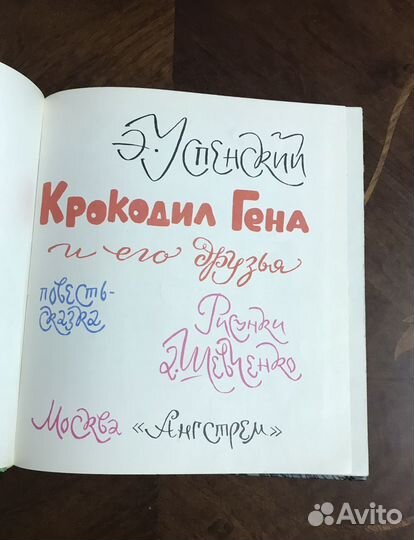 Э. Успенский
Крокодил Гена
и его друзья
повесть-
сказка
Рисунки
А. Шевченко
Москва «Ангстрем»
Avito